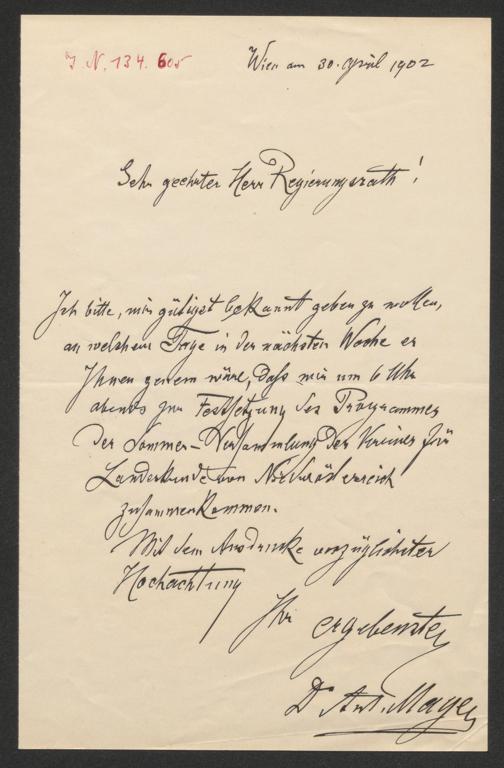 J. N. 134.605
Wien am 30. April 1902
Sehr geehrter Herr Regierungsrath!
Ich bitte, mir gütigst bekannt geben zu wollen,
an welchem Tage in der nächsten Woche es
Ihnen genem wäre, daß wir um 6 Uhr
abends zur Festsetzung des Programmes
der Sommer-Versammlung des Vereines für
Landeskunde von Niederösterreich
zusammenkommen.
Mit dem Ausdrucke vorzüglichster
Hochachtung
Ihr
ergebenster
Dr Ant. Mayer